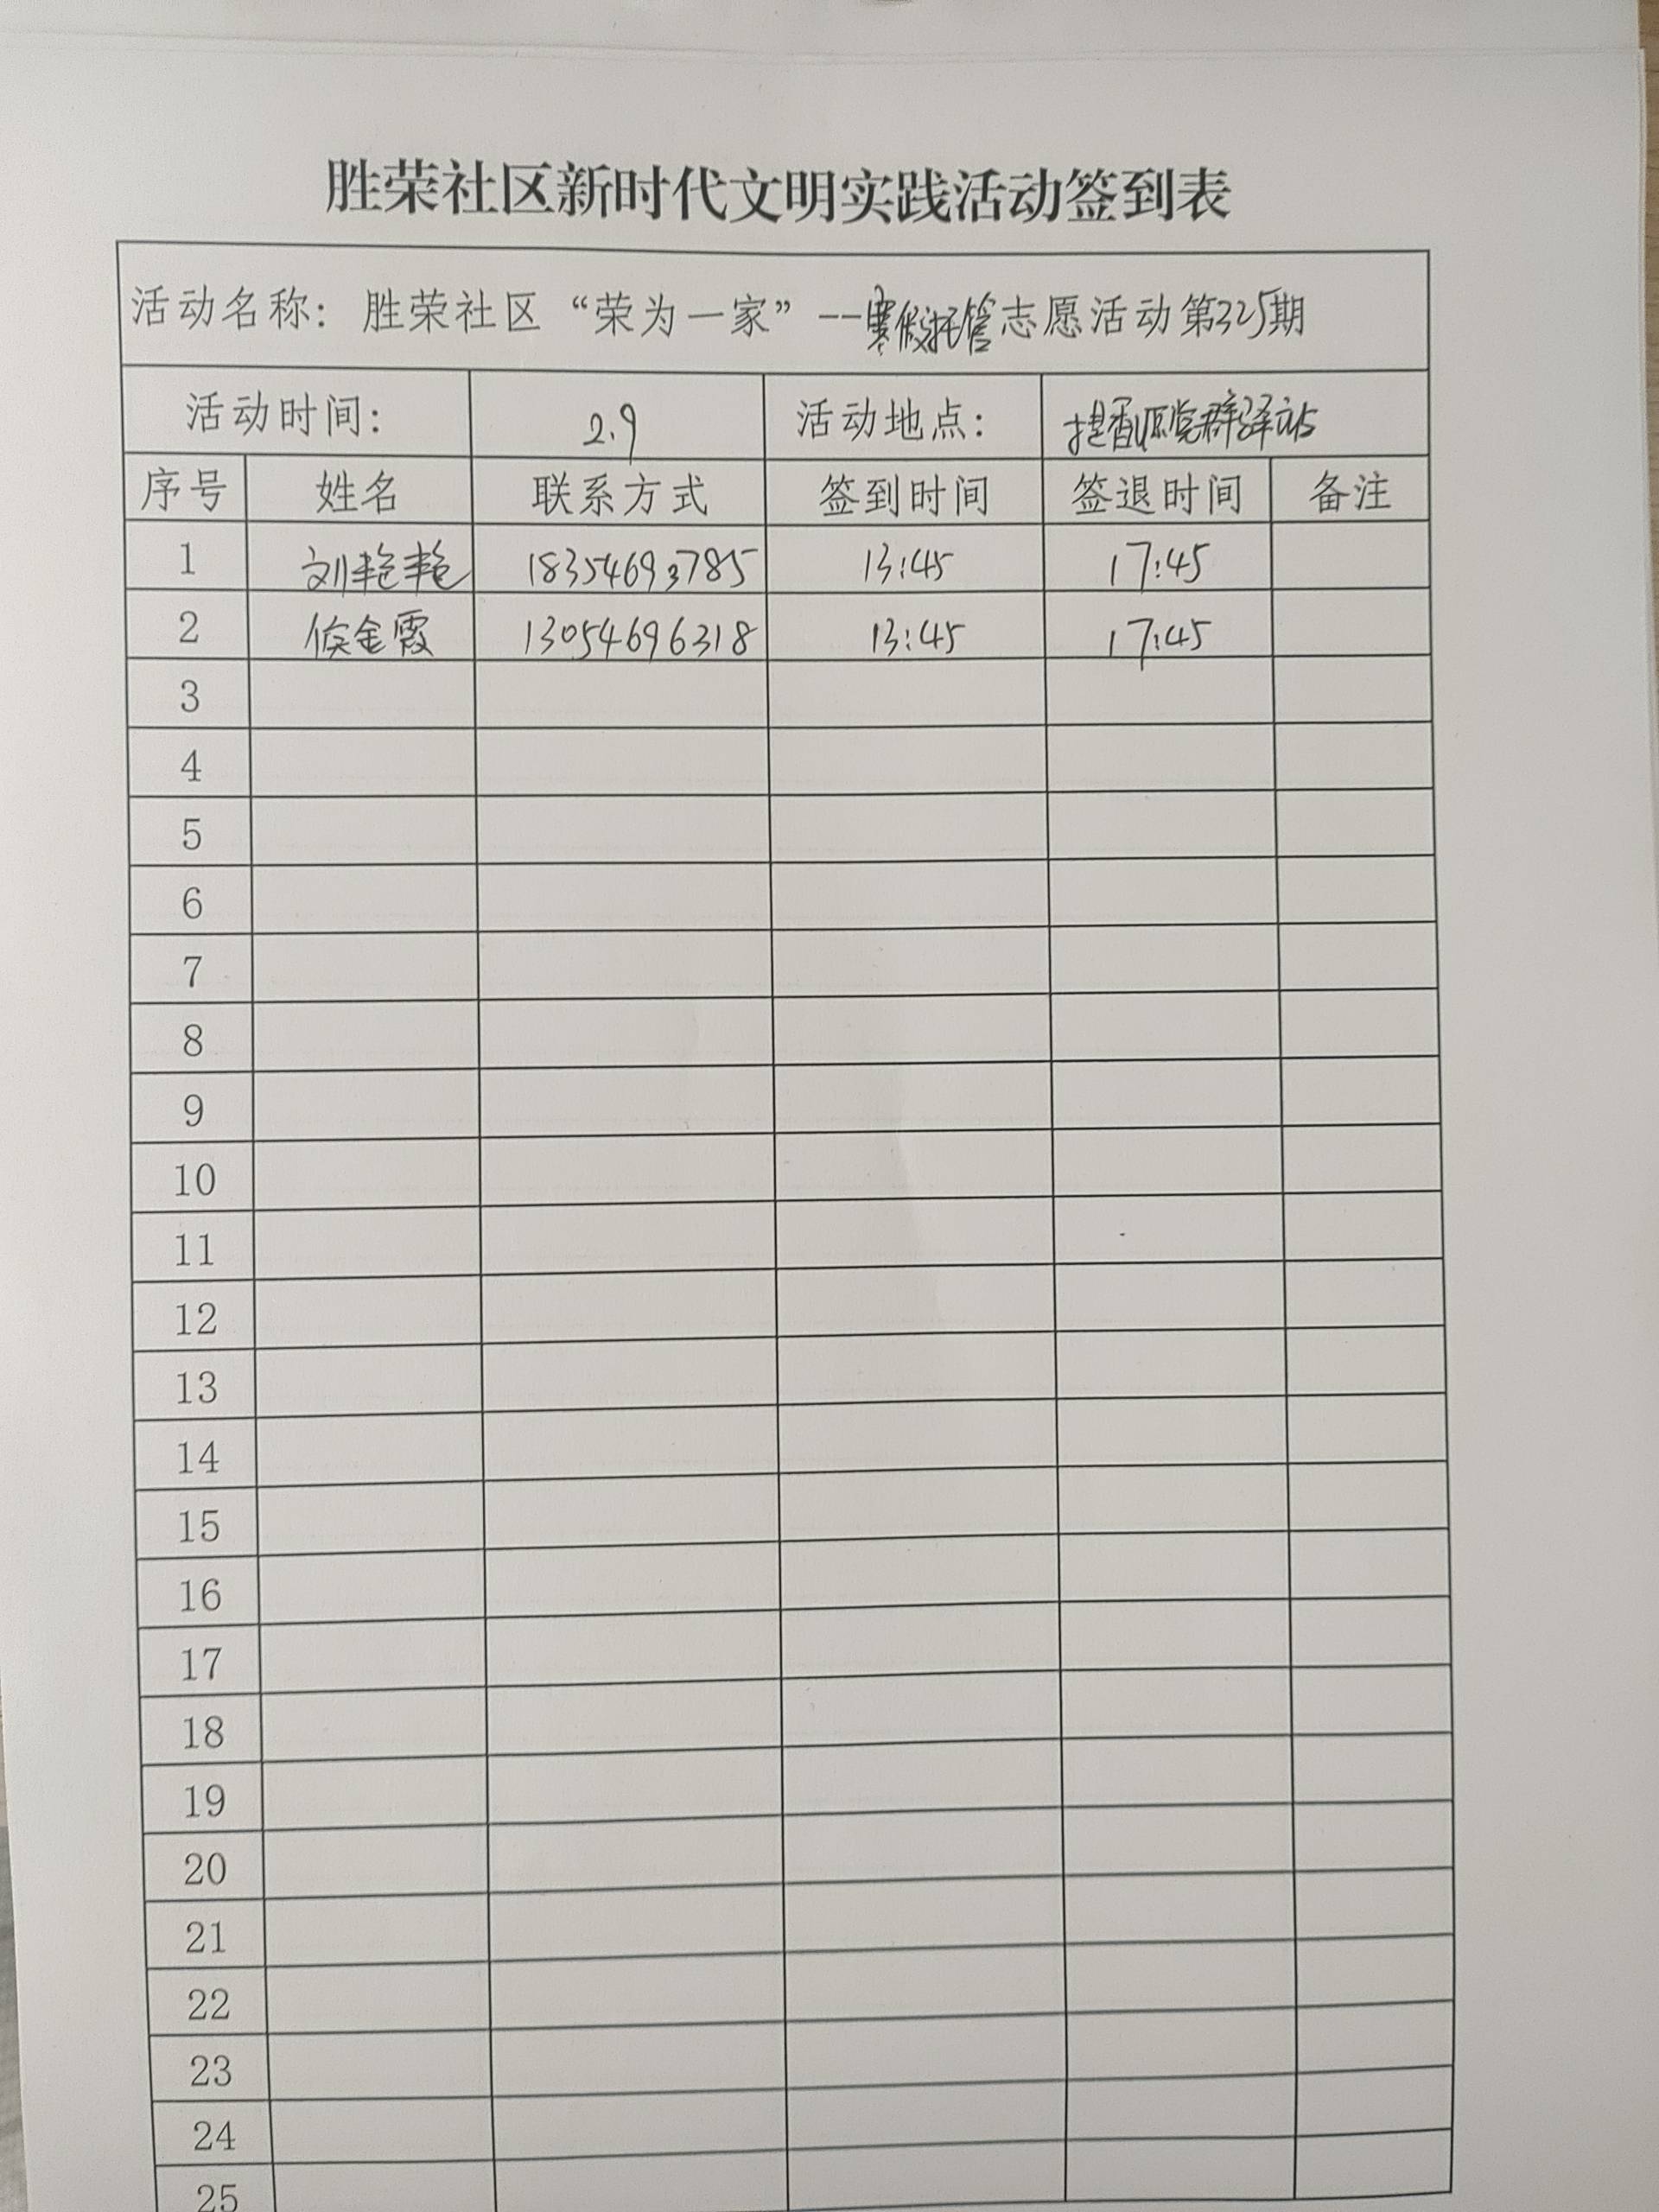 胜荣社区新时代文明实践活动签到表
活动名称：胜荣社区“荣为一家”--寒假托管志愿活动第325期
活动时间： 2.9 活动地点： 提香公馆党群驿站
序号 姓名 联系方式 签到时间 签退时间 备注
1 刘艳艳 18354693785 13:45 17:45
2 侯金霞 13054696318 13:45 17:45
3
4
5
6
7
8
9
10
11
12
13
14
15
16
17
18
19
20
21
22
23
24
25